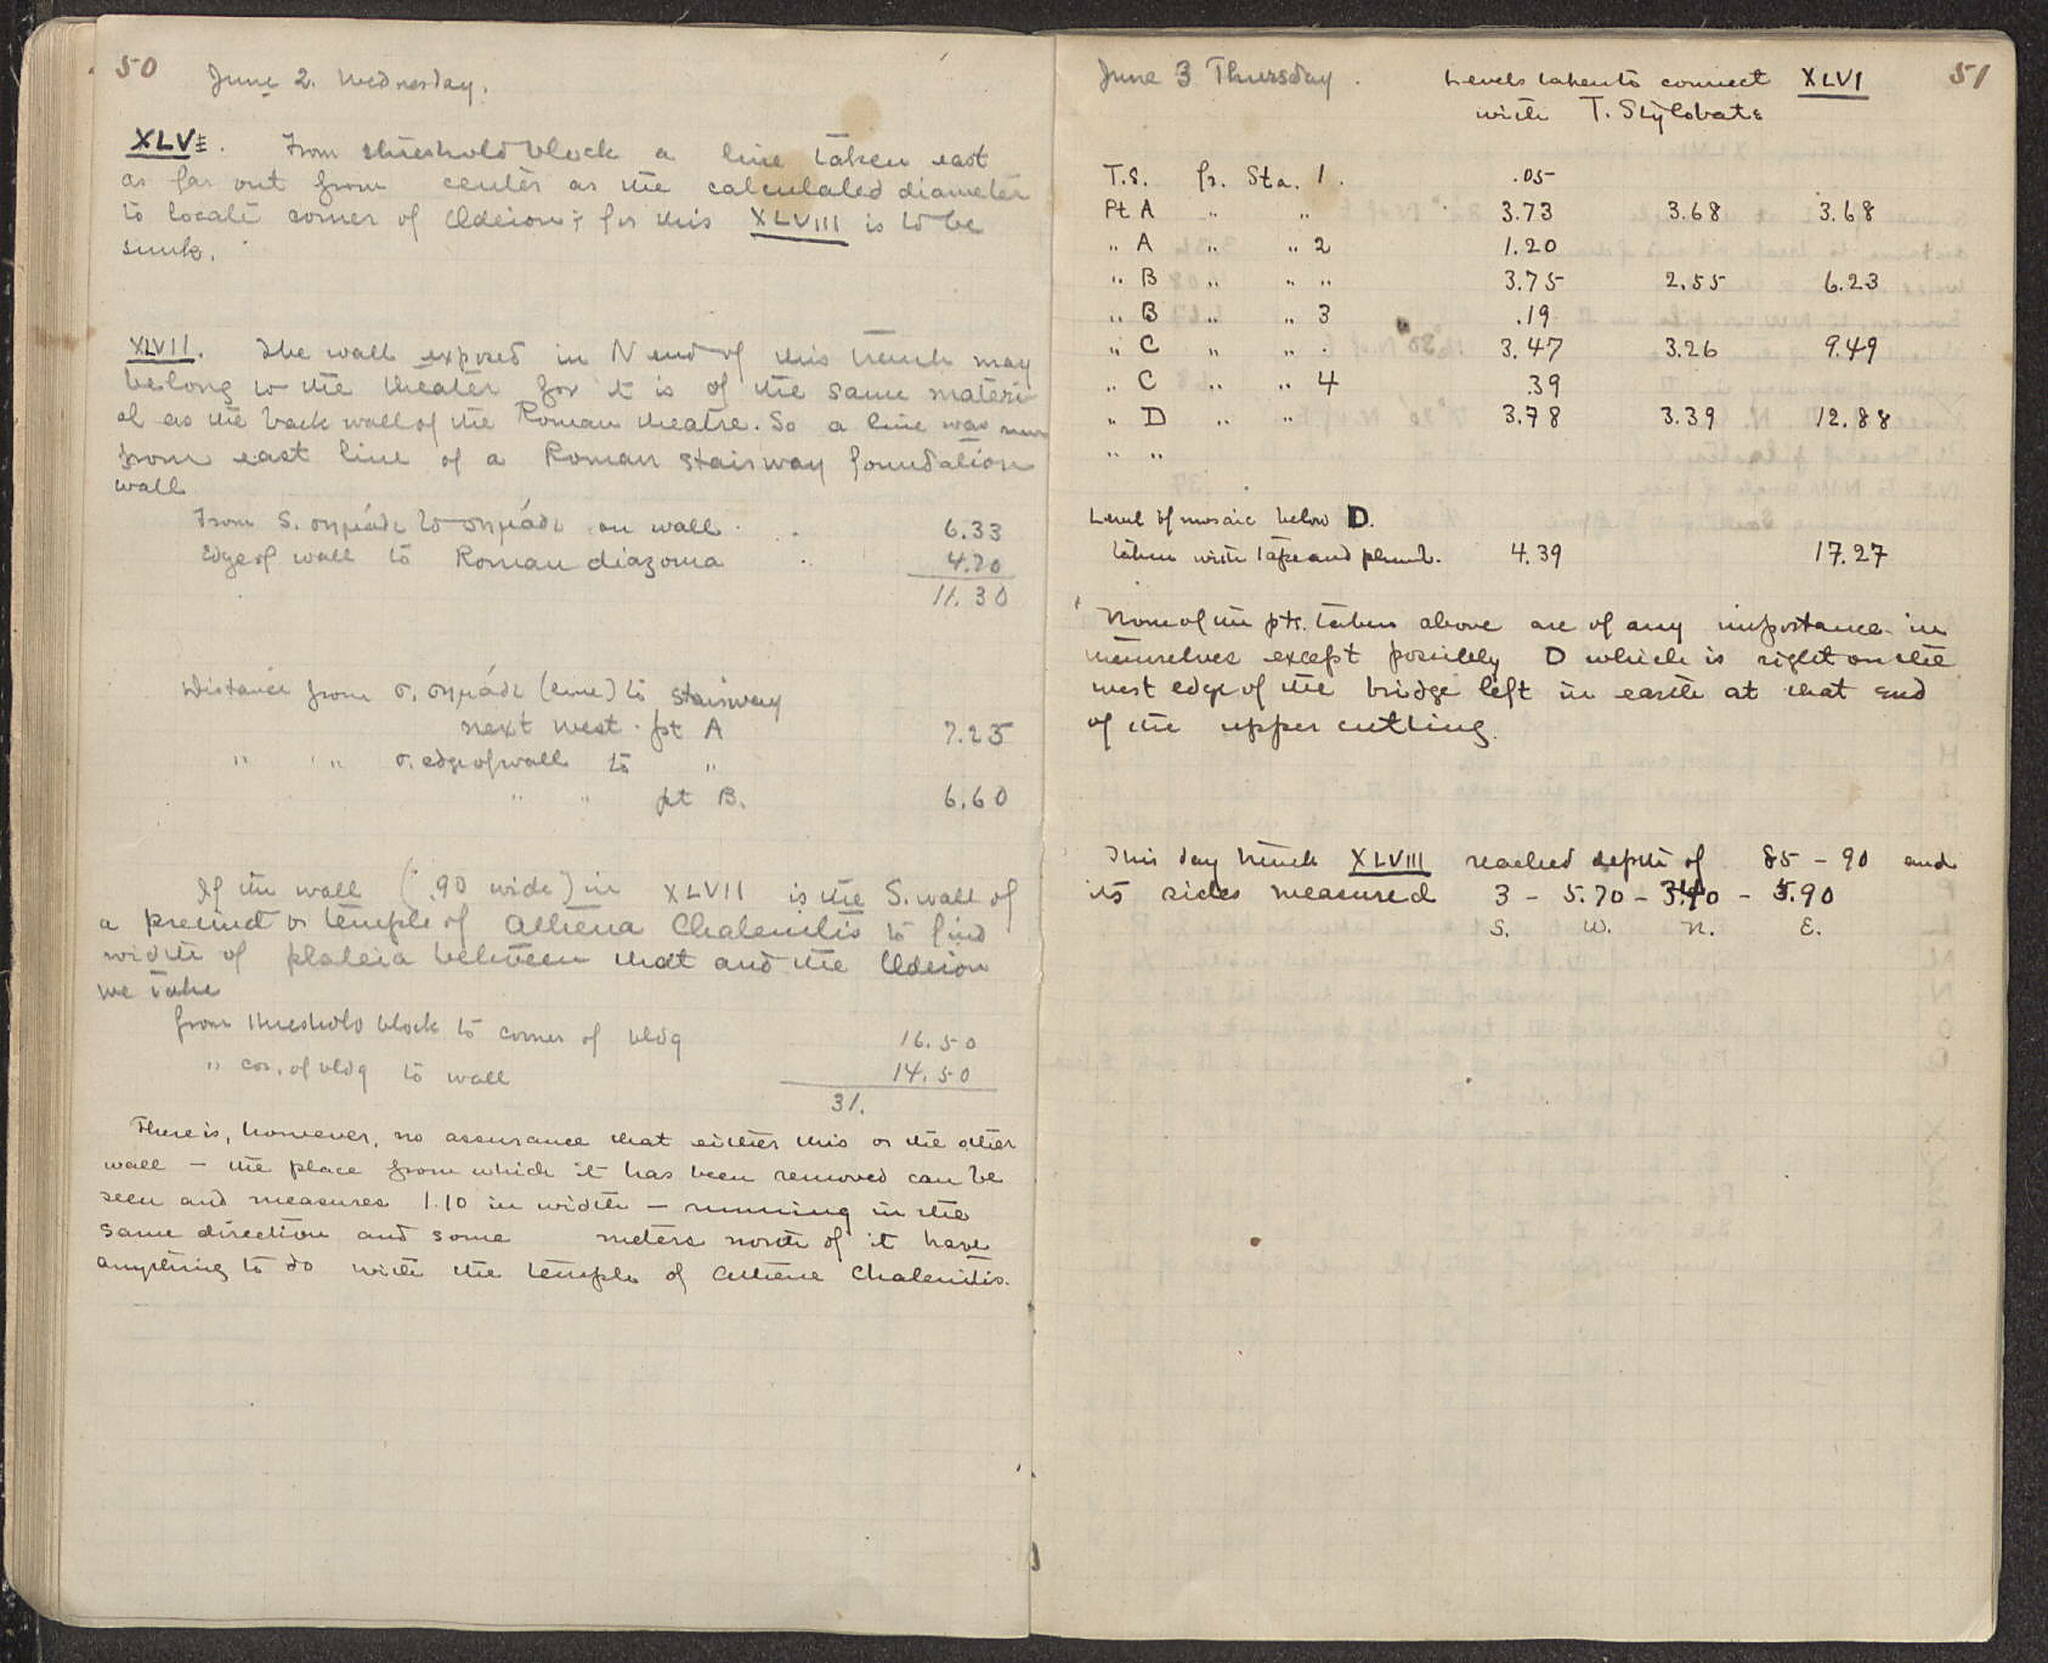 50
June 2. Wednesday.
XLVI. From threshold block a line taken east
as far out from center as the calculated diameter
to locate corner of Odeion; for this XLVIII is to be
sunk.
XLVII. The wall exposed in N end of this trench may
belong to the theater for it is of the same materi
al as the back wall of the Roman theatre. So a line was run
from east line of a Roman stairway foundation
wall
From S. σημάδι to σημάδι on wall . . 6.33
Edge of wall to Roman diazoma . 4.70
11.30
Distance from σ. σημάδι (line) to stairway
next west. pt A 7.25
" " σ. edge of wall to "
" " pt B. 6.60
If the wall (.90 wide) in XLVII is the S. wall of
a precinct or temple of Athena Chalenitis to find
width of plateia between that and the Odeion
we take
from threshold block to corner of bldg 16.50
" cor. of bldg to wall 14.50
31.
There is, however, no assurance that either this or the other
wall – the place from which it has been removed can be
seen and measures 1.10 in width – running in the
same direction and some meters north of it have
anything to do with the temple of Athene Chalenitis.
51
June 3 Thursday. Levels taken to connect XLVI
with T. Stylobate
T.S. fr. Sta. 1. .05
Pt A " " 3.73 3.68 3.68
" A " " 2 1.20
" B " " " 3.75 2.55 6.23
" B " " 3 .19
" C " " . 3.47 3.26 9.49
" C " " 4 .39
" D " " 3.78 3.39 12.88
" "
Level of mosaic below D.
taken with tape and plumb. 4.39 17.27
None of the pts. taken above are of any importance in
themselves except possibly D which is right on the
west edge of the bridge left in earth at that end
of the upper cutting.
This day trench XLVIII reached depth of 85 – 90 and
its sides measured 3 – 5.70 – 3.40 – 5.90
S. W. N. E.